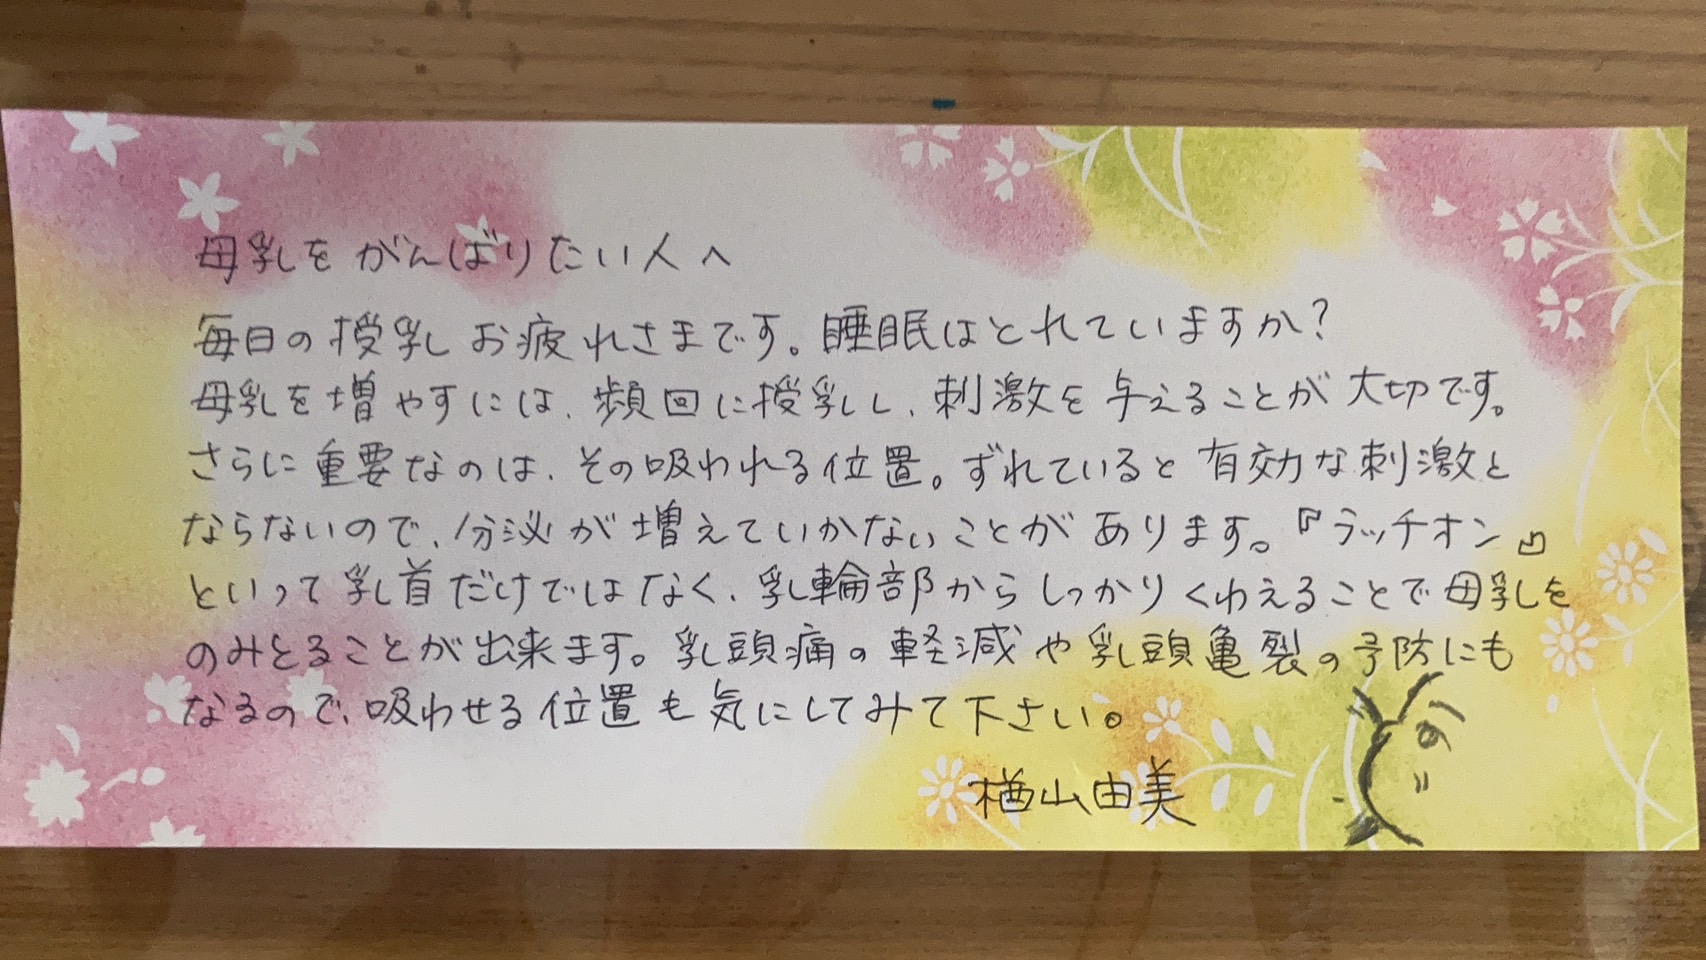 母乳をがんばりたい人へ
毎日の授乳お疲れさまです。睡眠はとれていますか？
母乳を増やすには、頻回に授乳し、刺激を与えることが大切です。
さらに重要なのは、その吸われる位置。ずれていると有効な刺激と
ならないので、分泌が増えていかないことがあります。『ラッチオン』
といって乳首だけではなく、乳輪部からしっかりくわえることで母乳を
のみとることが出来ます。乳頭痛の軽減や乳頭亀裂の予防にも
なるので、吸わせる位置も気にしてみて下さい。
楢山由美